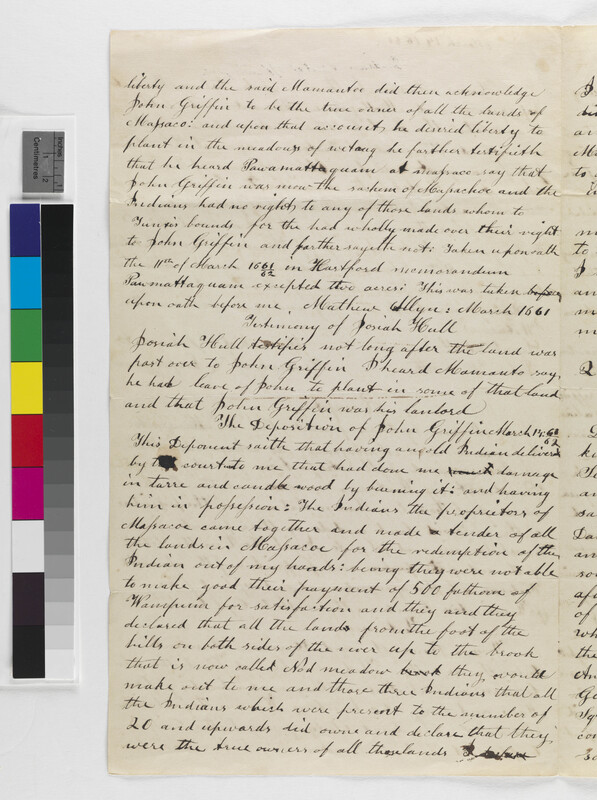 liberty and the said Mamantoe did then acknowledge
John Griffin to be the true owner of all the lands of
Massaco: and upon that account he desired liberty to
plant in the meadows of wetang he farther testifieth
that he heard Pawamattaquam at massaco say that
John Griffin was now the sachem of Masachoe and the
Indians had no rights to any of those lands whom to
Tunxis bounds for the had wholly made over their right
to John Griffin and farther sayeth not: Taken upon oath
the 11th of March 1661/62 in Hartford memorandum
Pawmattaquam excepted two acres: This was taken
upon oath before me, Mathew Allyn: March 1661
Testimony of Josiah Hull
Josiah Hull testifies not long after the land was
past over to John Griffin I heard Mamanto say,
he had leave of John to plant in some of that land
and that John Griffin was his lanlord
The Deposition of John Griffin March 14: 61/62
This Deponent saith that having an old Indian delivered
by the court to me that had done me damage
in tarre and candle wood by burning it: and having
him in possession: The Indians the proprietors of
Massacoe came together and made a tender of all
the lands in Massacoe for the redemption of the
Indian out of my hands: being they were not able
to make good their payment of 500 fathom of
Wampum for satisfaction and they and they
declared that all the lands from the foot of the
hills on both sides of the river up to the brook
that is now called Nod meadow they would
make out to me and those three Indians that all
the Indians which were present to the number of
20 and upwards did owne and declare that they
were the true owners of all the lands